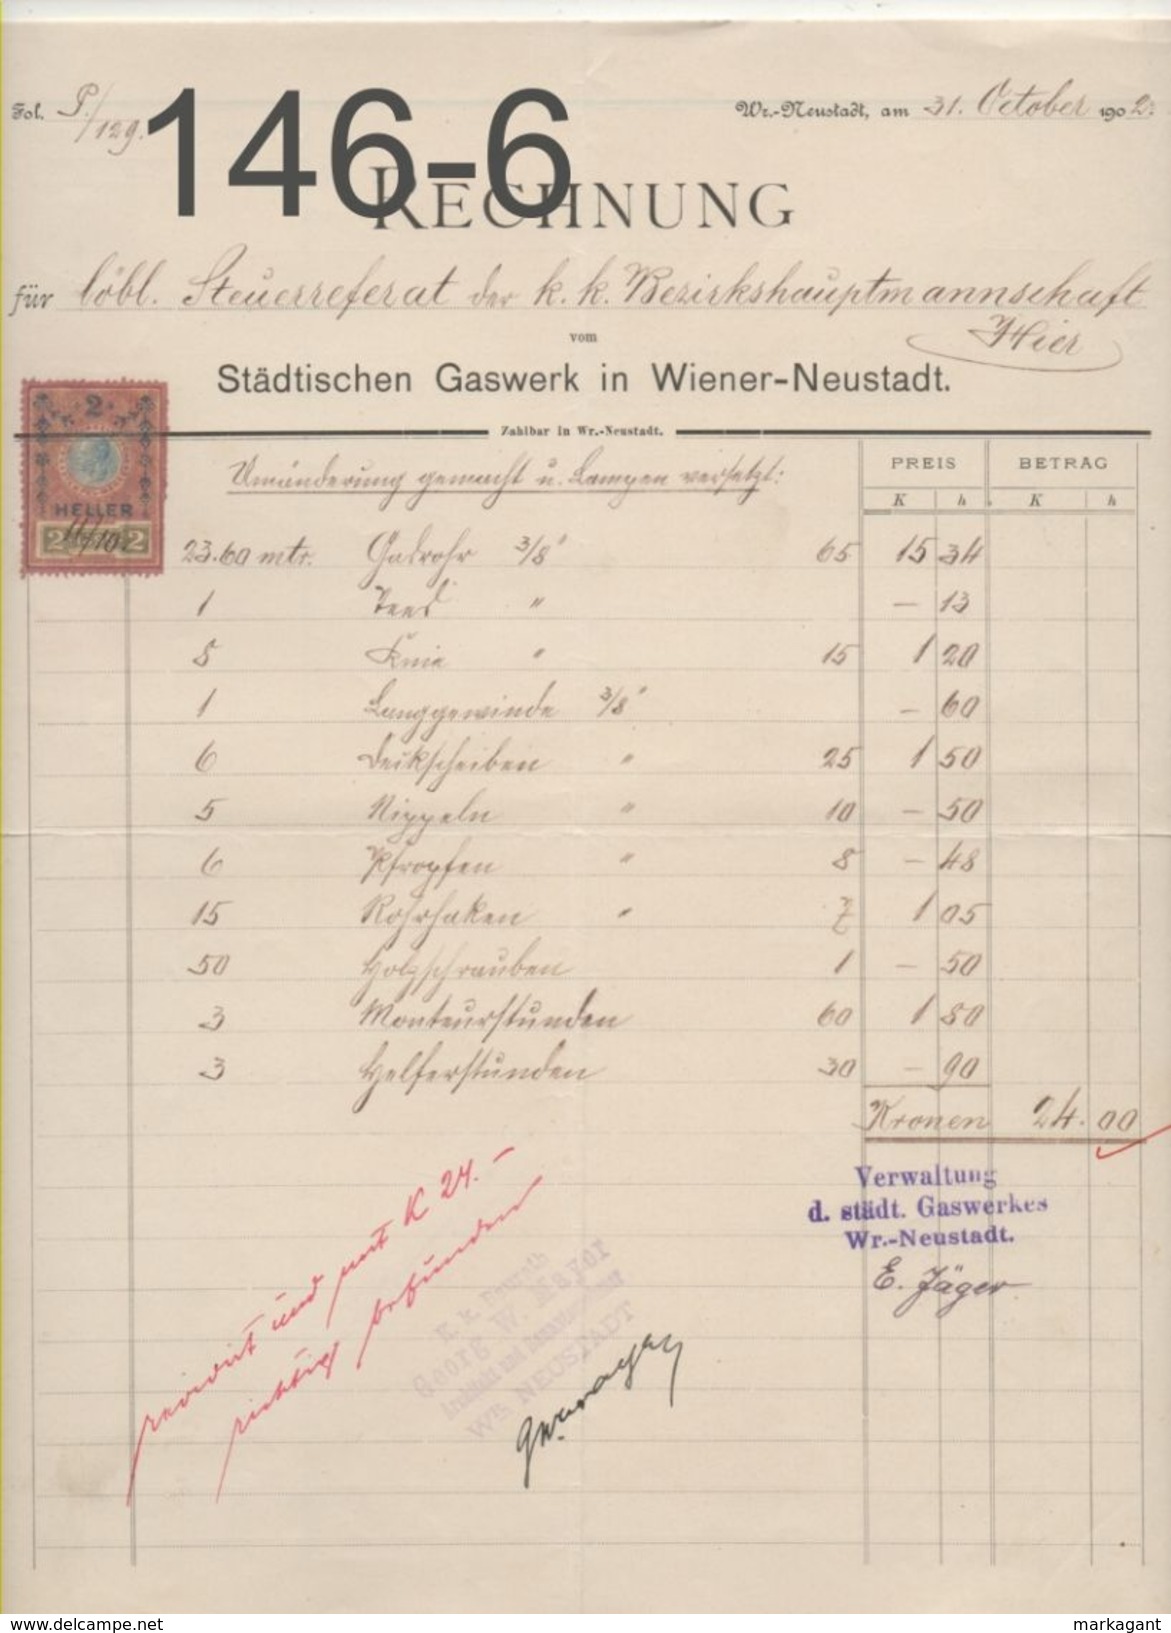 146-6
Fol. P/129.
Wr.-Neustadt, am 31. October 1902.
RECHNUNG
für löbl. Steuerreferat der k. k. Bezirkshauptmannschaft
Hier
vom
Städtischen Gaswerk in Wiener-Neustadt.
Zahlbar in Wr.-Neustadt.
2
HELLER
2 2
PREIS BETRAG
K h K h
Umänderung gemacht u. Lampen versetzt:
23.60 mtr. Gasrohr 3/8" 65 15 34
1 " — 13
8 Knie " 15 1 20
1 Langgewinde 3/8" — 60
6 Deckscheiben " 25 1 50
5 Nippeln " 10 — 50
6 Pfropfen " 8 — 48
15 Rohrhaken " 7 1 05
50 Holzschrauben 1 — 50
3 Monteurstunden 60 1 80
3 Helferstunden 30 — 90
Kronen 24.00
Verwaltung
d. städt. Gaswerkes
Wr.-Neustadt.
E. Jäger
revidirt und mit K 24.—
richtig befunden
Georg W. Mayer
WR. NEUSTADT
delcampe.net
markagant